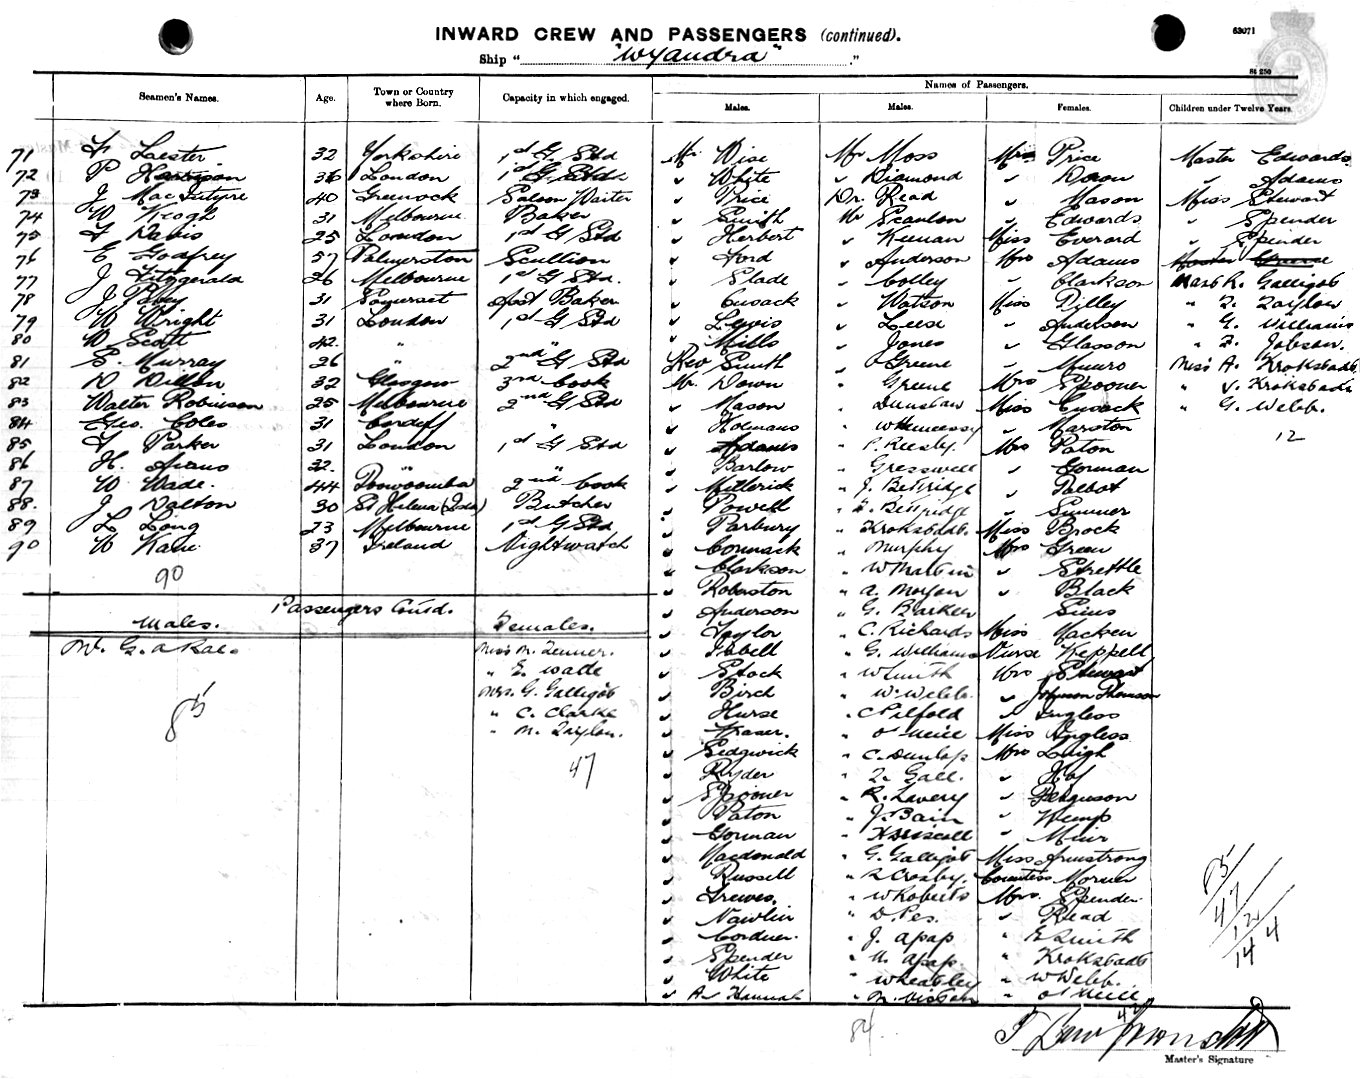 63071
INWARD CREW AND PASSENGERS (continued).
Ship " "Wyandra" ."
84 250
Seamen's Names. Age. Town or Country where Born. Capacity in which engaged. Names of Passengers.
Males. Males. Females. Children under Twelve Years.
71 F Lester 32 Yorkshire 1st G. Std
72 P Harrison 36 London 1st G Std
73 J MacIntyre 40 Greenock Saloon Waiter
74 W Keogh 31 Melbourne Baker
75 F Davis 25 London 1st G Std
76 E Godfrey 57 Palmerston Scullion
77 J Fitzgerald 26 Melbourne 1st G Std.
78 J 31 Somerset Asst Baker
79 W Wright 31 London 1st G Std
80 W Scott 42 "
81 S. Murray 26 " 2nd G Std
82 D Dillon 32 Glasgow 3rd Cook
83 Walter Robinson 25 Melbourne 2nd G Std
84 Geo. Coles 31 Cardiff "
85 F Parker 31 London 1st G Std
86 H. 32 " "
87 W Wade. 44 Toowoomba 2nd Cook
88. J Dalton 30 St Helena Butcher
89 L Long 23 Melbourne 1st G Std
90 W Kane 37 Ireland Nightwatch
90
Passengers Contd.
Males. Females.
Mr. G. A Rae.
Miss M. Zenner.
" E. Wade
Mrs. G. Galligob
" C. Clarke
" M. Taylor.
85
47
Mr Wise
" White
" Price
" Smith
" Herbert
" Ford
" Slade
" Cusack
" Lewis
" Mills
Rev Smith
Mr. Down
" Mason
" Holmans
" Adams
" Barlow
" Mitlerick
" Powell
" Parbury
" Cormack
" Clarkson
" Roberston
" Anderson
" Taylor
" Isbell
" Stock
" Birch
" Hurse
" Fraser.
" Sedgwick
" Ryder
" Spooner
" Paton
" Gorman
" Macdonald
" Russell
" Drewes.
" Nawlin
" Cordner.
" Spender
" White
" A Hannah
Mr Moss
" Diamond
Dr. Read
Mr Scanlon
" Keenan
" Anderson
" Colley
" Watson
" Leese
" Jones
" Greene
" Greene
" Dunstan
" W Hennessy
" P. Reesby.
" Gresswell
" J. Bettridge
" F. Bettridge
" Krokstadt
" Murphy
" W Martin
" A. Morgan
" G. Barker
" C. Richards
" G. Williams
" W Smith
" W. Webb.
" C Pilfold
" O'Neill
" C. Dunlop
" T. Gall.
" R. Lavery
" J. Bain
" H Driscoll
" G. Galligob
" R Crosby.
" W Roberts
" D. Pes.
" J. Apap
" A. Apap.
" Wheatley
" M.
84
Mrs Price
" Dixon
" Mason
" Edwards
Miss Everard
Mrs Adams
" Clarkson
Miss Dilley
" Anderson
" Glasson
" Munro
Mrs Spooner
Miss Cusack
" Marston
Mrs Paton
" Gorman
" Talbot
" Sumner
Miss Brock
Mrs Green
" Strettle
" Black
" Sims
Miss Macken
Nurse Keppell
Mrs Stewart
" Johnson Thomson
" Ingless
Miss Ingless
Mrs Leigh
" Hoj
" Ferguson
" Kemp
" Muir
Miss Armstrong
Countess Morner
Mrs. Spender
" Read
" E Smith
" Krokstadt
" W Webb.
" O'Neill
42
Master Edwards
" Adams
Miss Stewart
" Spender
" Spender
Master Greene
Mast R. Galligob
" T. Taylor
" G. Williams
" F. Jobson.
Miss A. Krokstadt
" V. Krokstadt
" G. Webb.
12
85
47
12
144
Master's Signature